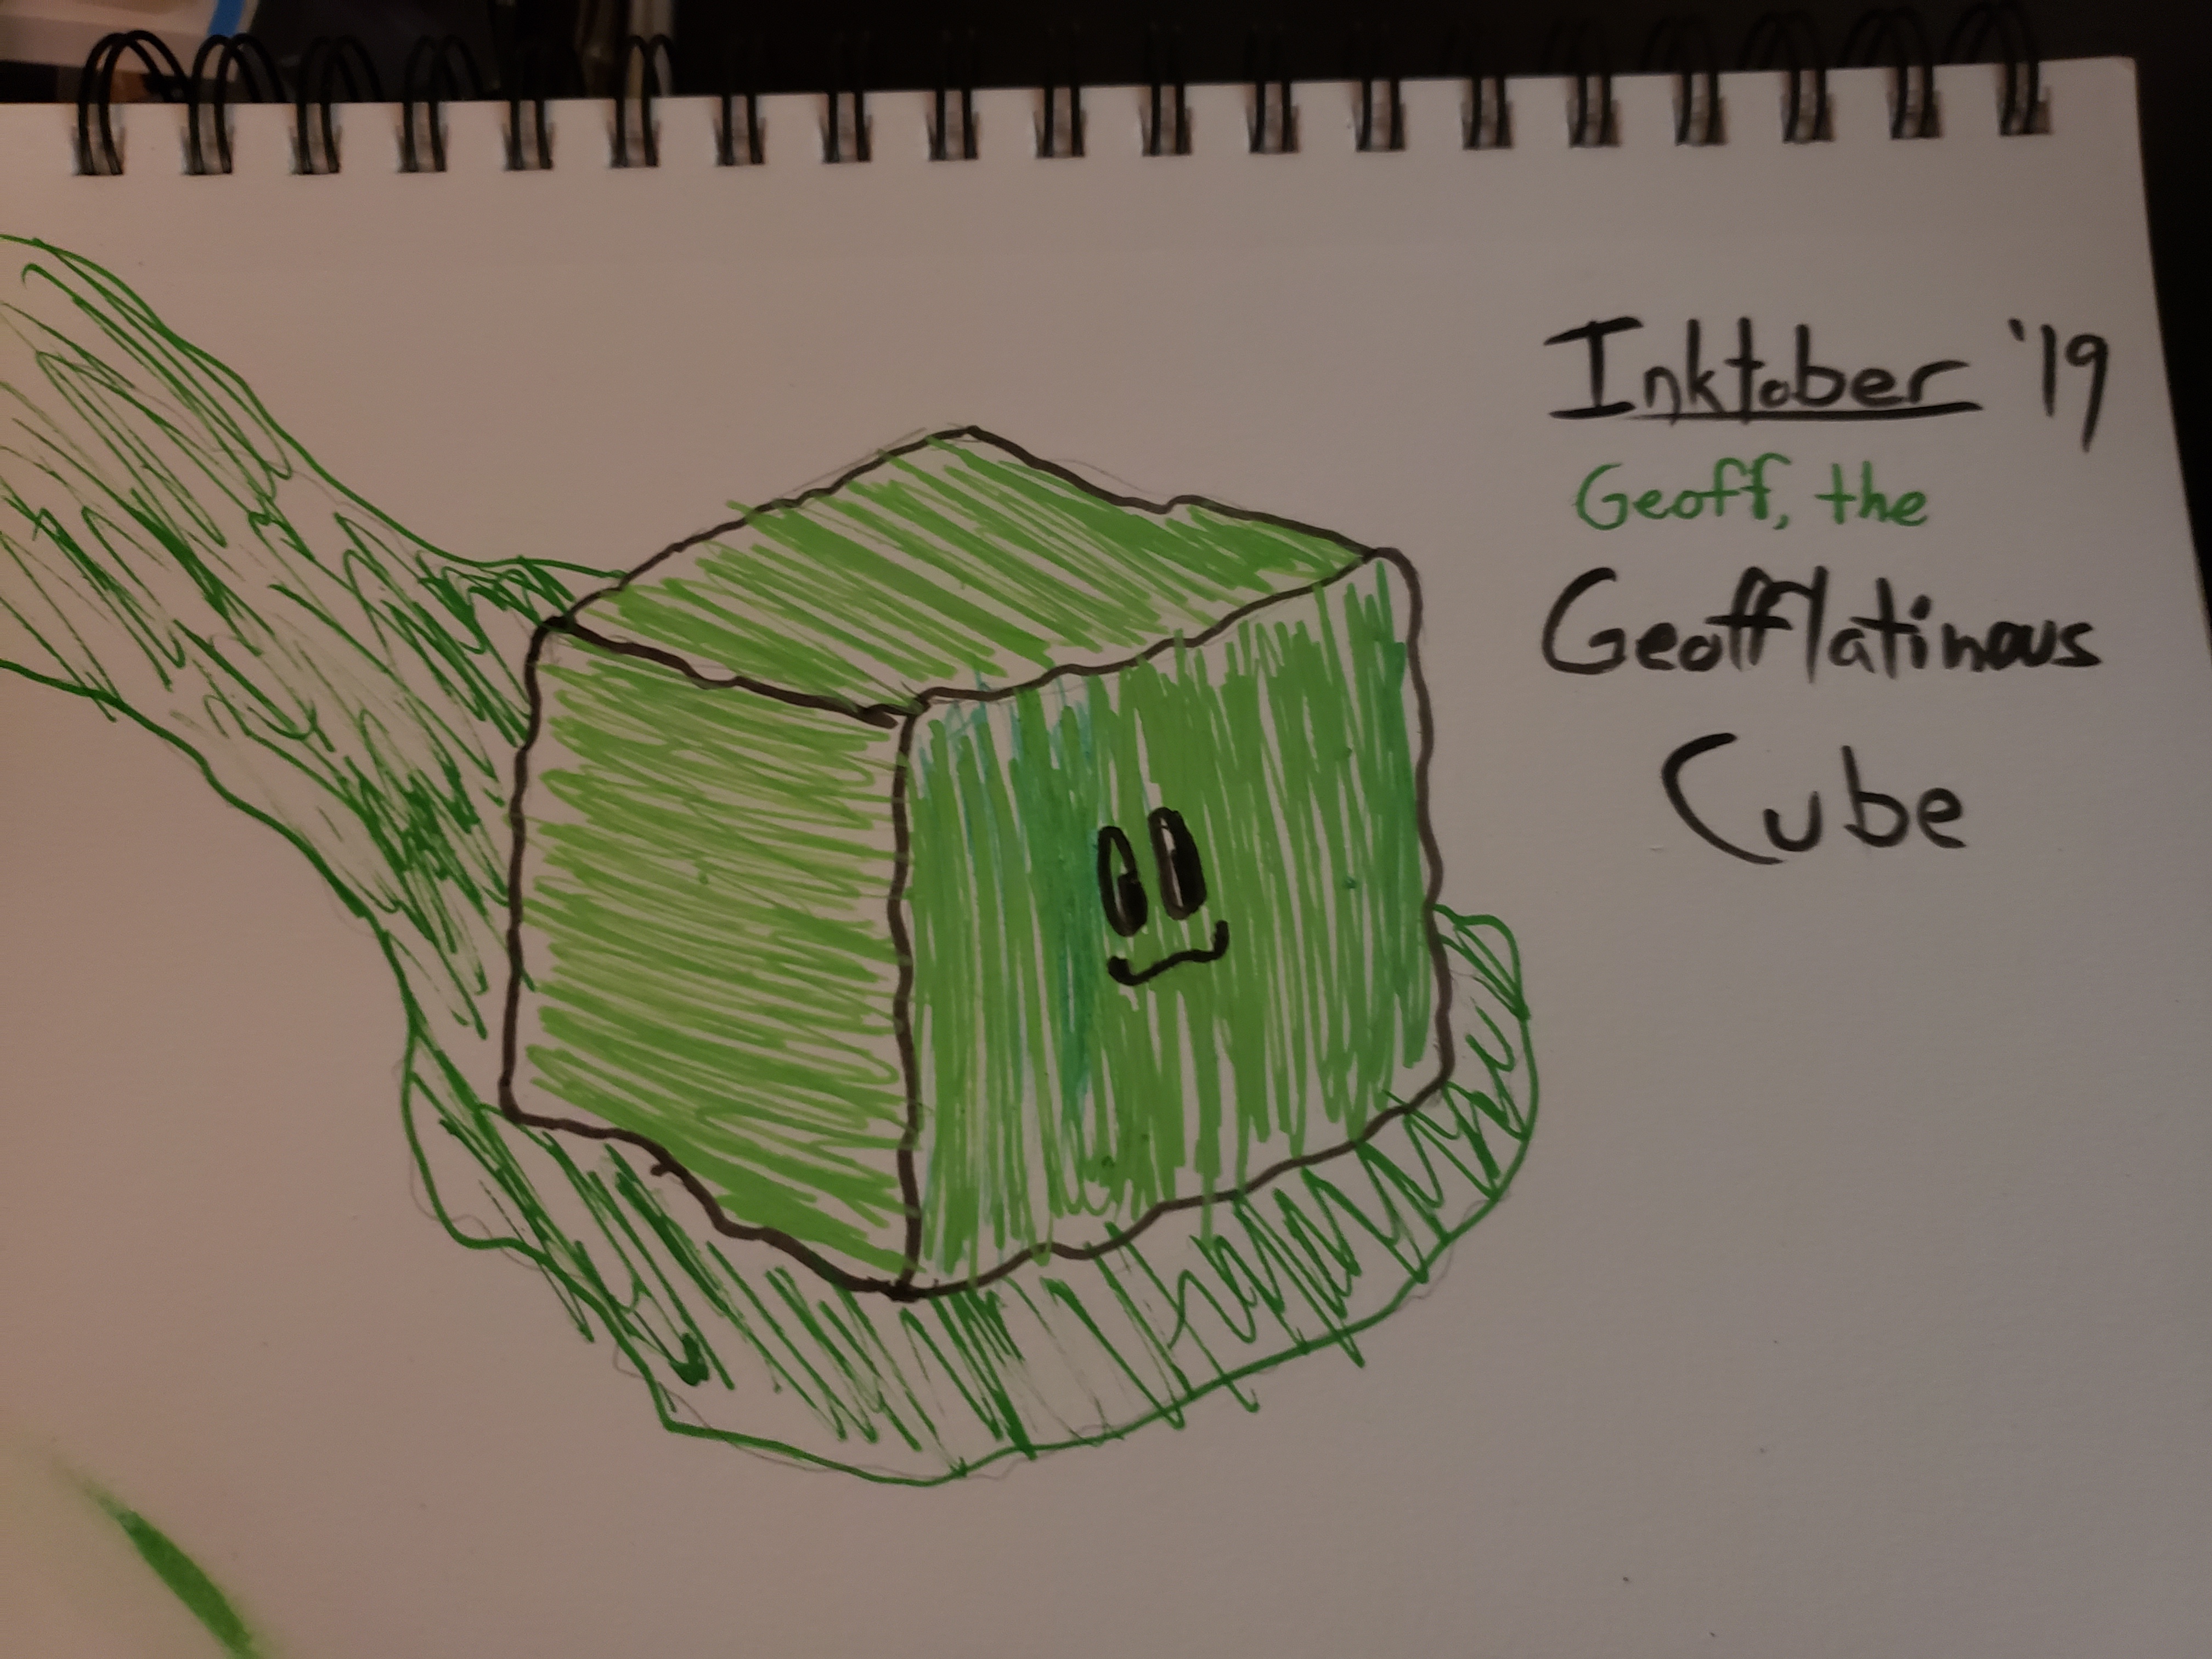 Inktober '19
Geoff, the
Geofflatinous
Cube